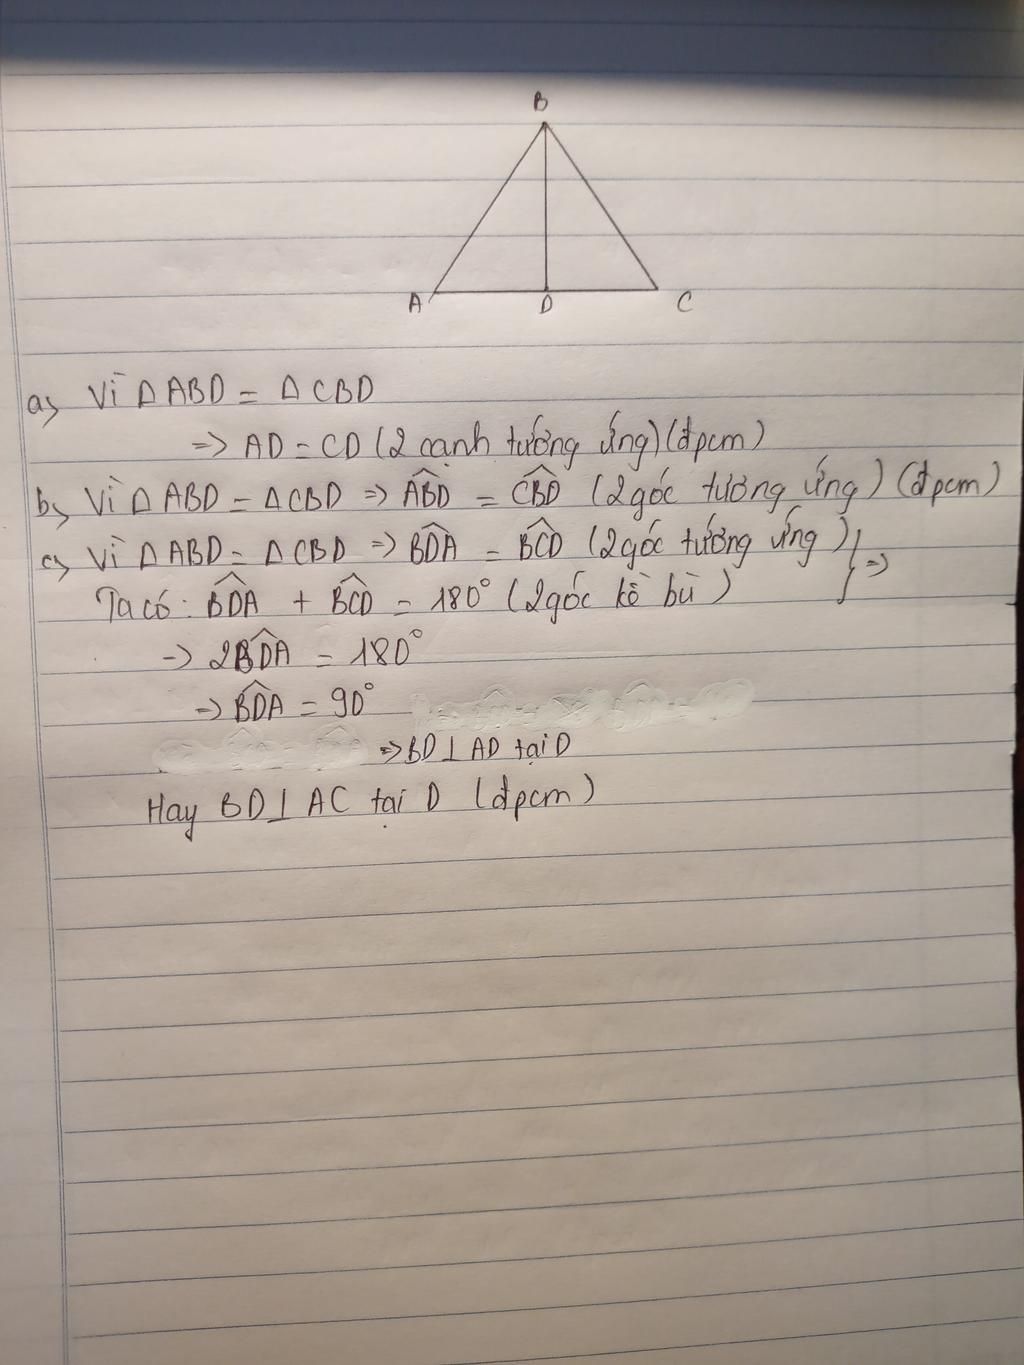 B
A D C
a, Vì Δ ABD = Δ CBD
=> AD = CD (2 cạnh tướng ứng) (đpcm)
b, Vì Δ ABD = Δ CBD => ABD̂ = CBD̂ (2 góc tương ứng) (đpcm)
c, Vì Δ ABD = Δ CBD => BDÂ = BCD̂ (2 góc tướng ứng) } =>
Ta có: BDÂ + BCD̂ = 180° (2 góc kề bù)
-> 2BDÂ = 180°
-> BDÂ = 90°
=> BD ⊥ AD tại D
Hay BD ⊥ AC tại D (đpcm)